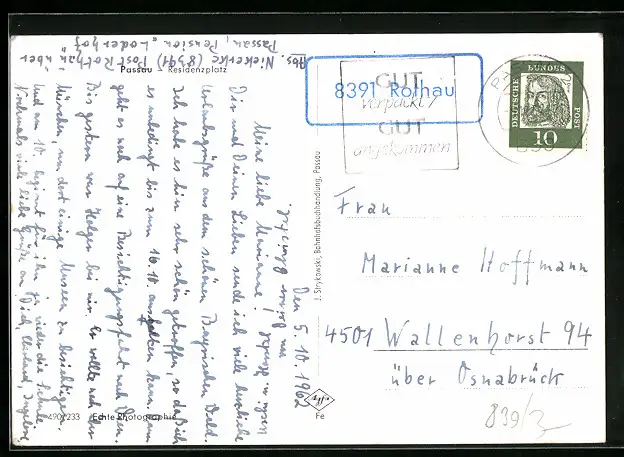 Abs. Niekerke (8391) Post Rothau über
Passau, Pension "Loderhof"
Passau - Residenzplatz
8391 Rothau
GUT
verpackt /
GUT
angekommen
DEUTSCHE BUNDESPOST
10
Den 5.10.1962
Meine liebe Marianne!
Dir und Deinen Lieben sende ich viele herzliche
Urlaubsgrüße aus dem schönen Bayrischen Wald.
Ich habe es hier sehr schön getroffen, so daß ich
es unbedingt bis zum 16.10. aushalten kann. Dann
geht es noch auf eine Besichtigungsfahrt nach
Bis gestern war Holger bei mir. Er wollte noch über
München, um dort einige Museen zu besichtigen
und am 10. beginnt für ihn ja wieder die Schule.
Nochmals viele liebe Grüße an Dich,
J. Strykowski, Bahnhofsbuchhandlung, Passau
Frau
Marianne Hoffmann
4501 Wallenhorst 94
über Osnabrück
839/3
Fe
490/233 Echte Photographie